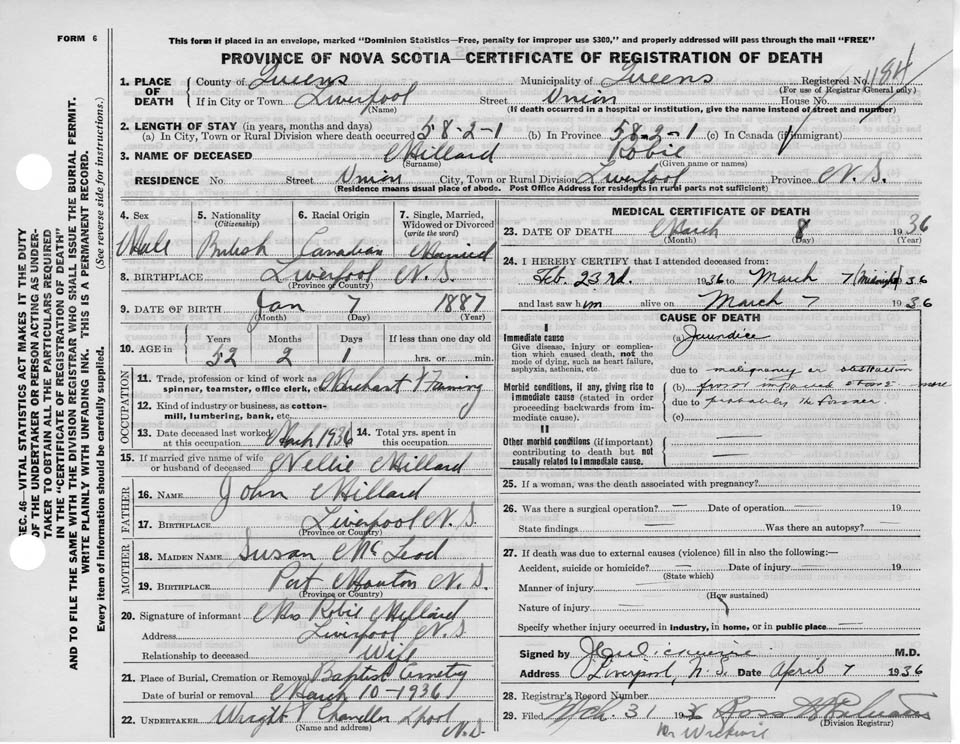 FORM 6
This form if placed in an envelope, marked "Dominion Statistics—Free, penalty for improper use $300," and properly addressed will pass through the mail "FREE"
PROVINCE OF NOVA SCOTIA—CERTIFICATE OF REGISTRATION OF DEATH
SEC. 46—VITAL STATISTICS ACT MAKES IT THE DUTY
OF THE UNDERTAKER OR PERSON ACTING AS UNDER-
TAKER TO OBTAIN ALL THE PARTICULARS REQUIRED
IN THE "CERTIFICATE OF REGISTRATION OF DEATH"
AND TO FILE THE SAME WITH THE DIVISION REGISTRAR WHO SHALL ISSUE THE BURIAL PERMIT.
WRITE PLAINLY WITH UNFADING INK. THIS IS A PERMANENT RECORD.
Every item of information should be carefully supplied. (See reverse side for instructions.)
1. PLACE OF DEATH County of Queens Municipality of Queens Registered No. 1184
(For use of Registrar General only)
If in City or Town Liverpool Street Union House No.
(Name) (If death occurred in a hospital or institution, give the name instead of street and number)
2. LENGTH OF STAY (in years, months and days)
(a) In City, Town or Rural Division where death occurred 58-2-1 (b) In Province 58-2-1 (c) In Canada (if immigrant)
3. NAME OF DECEASED Millard Robie
(Surname) (Given name or names)
RESIDENCE No. Street Union City, Town or Rural Division Liverpool Province N. S.
(Residence means usual place of abode. Post Office Address for residents in rural parts not sufficient)
4. Sex 5. Nationality (Citizenship) 6. Racial Origin 7. Single, Married, Widowed or Divorced (write the word)
Male British Canadian Married
8. BIRTHPLACE Liverpool N. S.
(Province or Country)
9. DATE OF BIRTH Jan 7 1887
(Month) (Day) (Year)
10. AGE in Years Months Days If less than one day old
52 2 1 hrs. or min.
OCCUPATION
11. Trade, profession or kind of work as spinner, teamster, office clerk, etc. Merchant & Farming
12. Kind of industry or business, as cotton-mill, lumbering, bank, etc.
13. Date deceased last worked at this occupation March 1936 14. Total yrs. spent in this occupation
15. If married give name of wife or husband of deceased Nellie Millard
FATHER
16. NAME John Millard
17. BIRTHPLACE Liverpool N. S.
(Province or Country)
MOTHER
18. MAIDEN NAME Susan Mc Leod
19. BIRTHPLACE Port Mouton N. S.
(Province or Country)
20. Signature of informant Mrs Robie Millard
Address Liverpool N. S.
Relationship to deceased Wife
21. Place of Burial, Cremation or Removal Baptist Cemetry
Date of burial or removal March 10-1936
22. UNDERTAKER Wright & Chandler Lpool N. S.
(Name and address)
MEDICAL CERTIFICATE OF DEATH
23. DATE OF DEATH March 8 1936
(Month) (Day) (Year)
24. I HEREBY CERTIFY that I attended deceased from:
Feb. 23rd. 1936 to March 7 (Midnight) 1936
and last saw him alive on March 7 1936
CAUSE OF DEATH
I
Immediate cause
Give disease, injury or complication which caused death, not the mode of dying, such as heart failure, asphyxia, asthenia, etc.
(a) Jaundice
due to malignancy or obstruction
Morbid conditions, if any, giving rise to immediate cause (stated in order proceeding backwards from immediate cause).
(b) from impacted stone — more
due to probably the former.
(c)
II
Other morbid conditions (if important) contributing to death but not causally related to immediate cause.
25. If a woman, was the death associated with pregnancy?
26. Was there a surgical operation? — Date of operation — 19
State findings — Was there an autopsy? —
27. If death was due to external causes (violence) fill in also the following:—
Accident, suicide or homicide? — Date of injury — 19
(State which)
Manner of injury —
(How sustained)
Nature of injury —
Specify whether injury occurred in industry, in home, or in public place —
Signed by M.D.
Address Liverpool, N. S. Date April 7 1936
28. Registrar's Record Number
29. Filed Mch 31 1936 Ross
(Division Registrar)